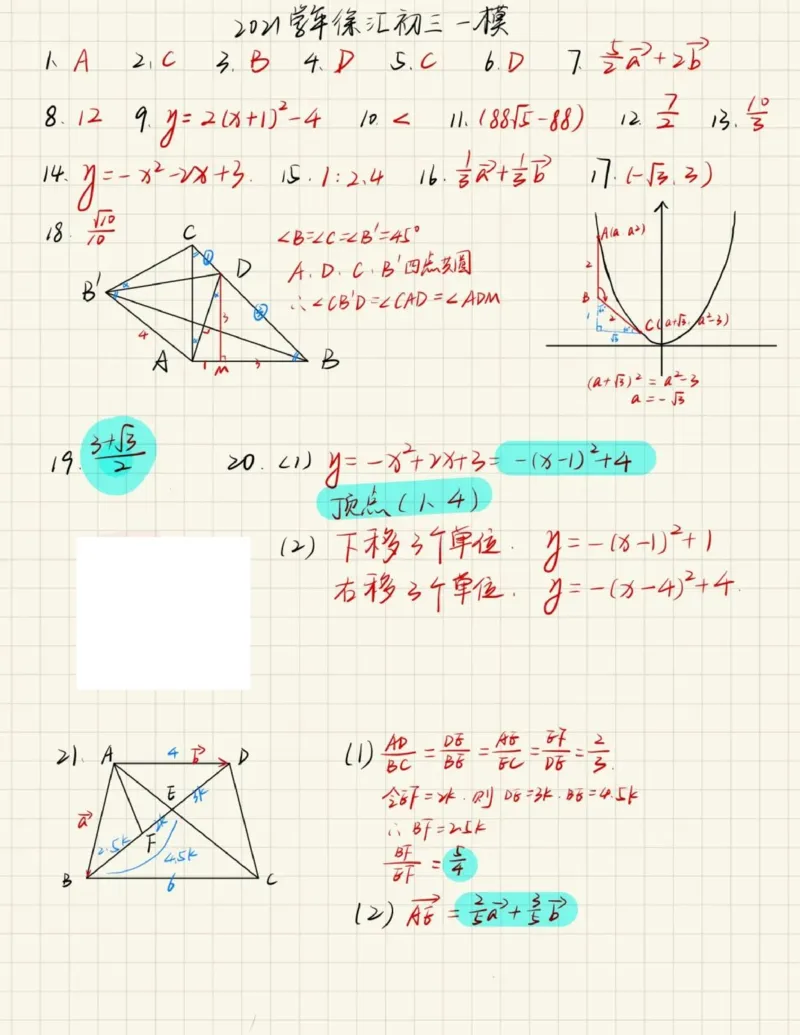 2021学年徐汇初三一模
1. A 2. C 3. B 4. D 5. C 6. D 7. 5/2 a→+2b→
8. 12 9. y=2(x+1)²-4 10. < 11. (88√5-88) 12. 7/2 13. 10/3
14. y=-x²-2x+3. 15. 1:2.4 16. 1/3 a→+1/3 b→ 17. (-√3, 3)
18. √10/10
∠B=∠C=∠B'=45°
A、D、C、B'四点共圆
∴∠CB'D=∠CAD=∠ADM
C ① D B' ② 4 3 A 1 M 3 B
A(a, a²)
2
B
1 2 C(a+√3, a²-3)
√3
(a+√3)²=a²-3
a=-√3
19. (3+√3)/2 20. (1) y=-x²+2x+3=-(x-1)²+4
顶点(1、4)
(2) 下移3个单位. y=-(x-1)²+1
右移3个单位. y=-(x-4)²+4.
21. A 4 b→ D
E 3k
a→ 2k
F
2.5k 4.5k
B 6 C
(1) AD/BC=DE/BE=AE/EC=EF/DE=2/3.
令EF=2k.则DE=3k.BE=4.5k
∴BF=2.5k
BF/EF=5/4
(2) AE→=2/5 a→+3/5 b→